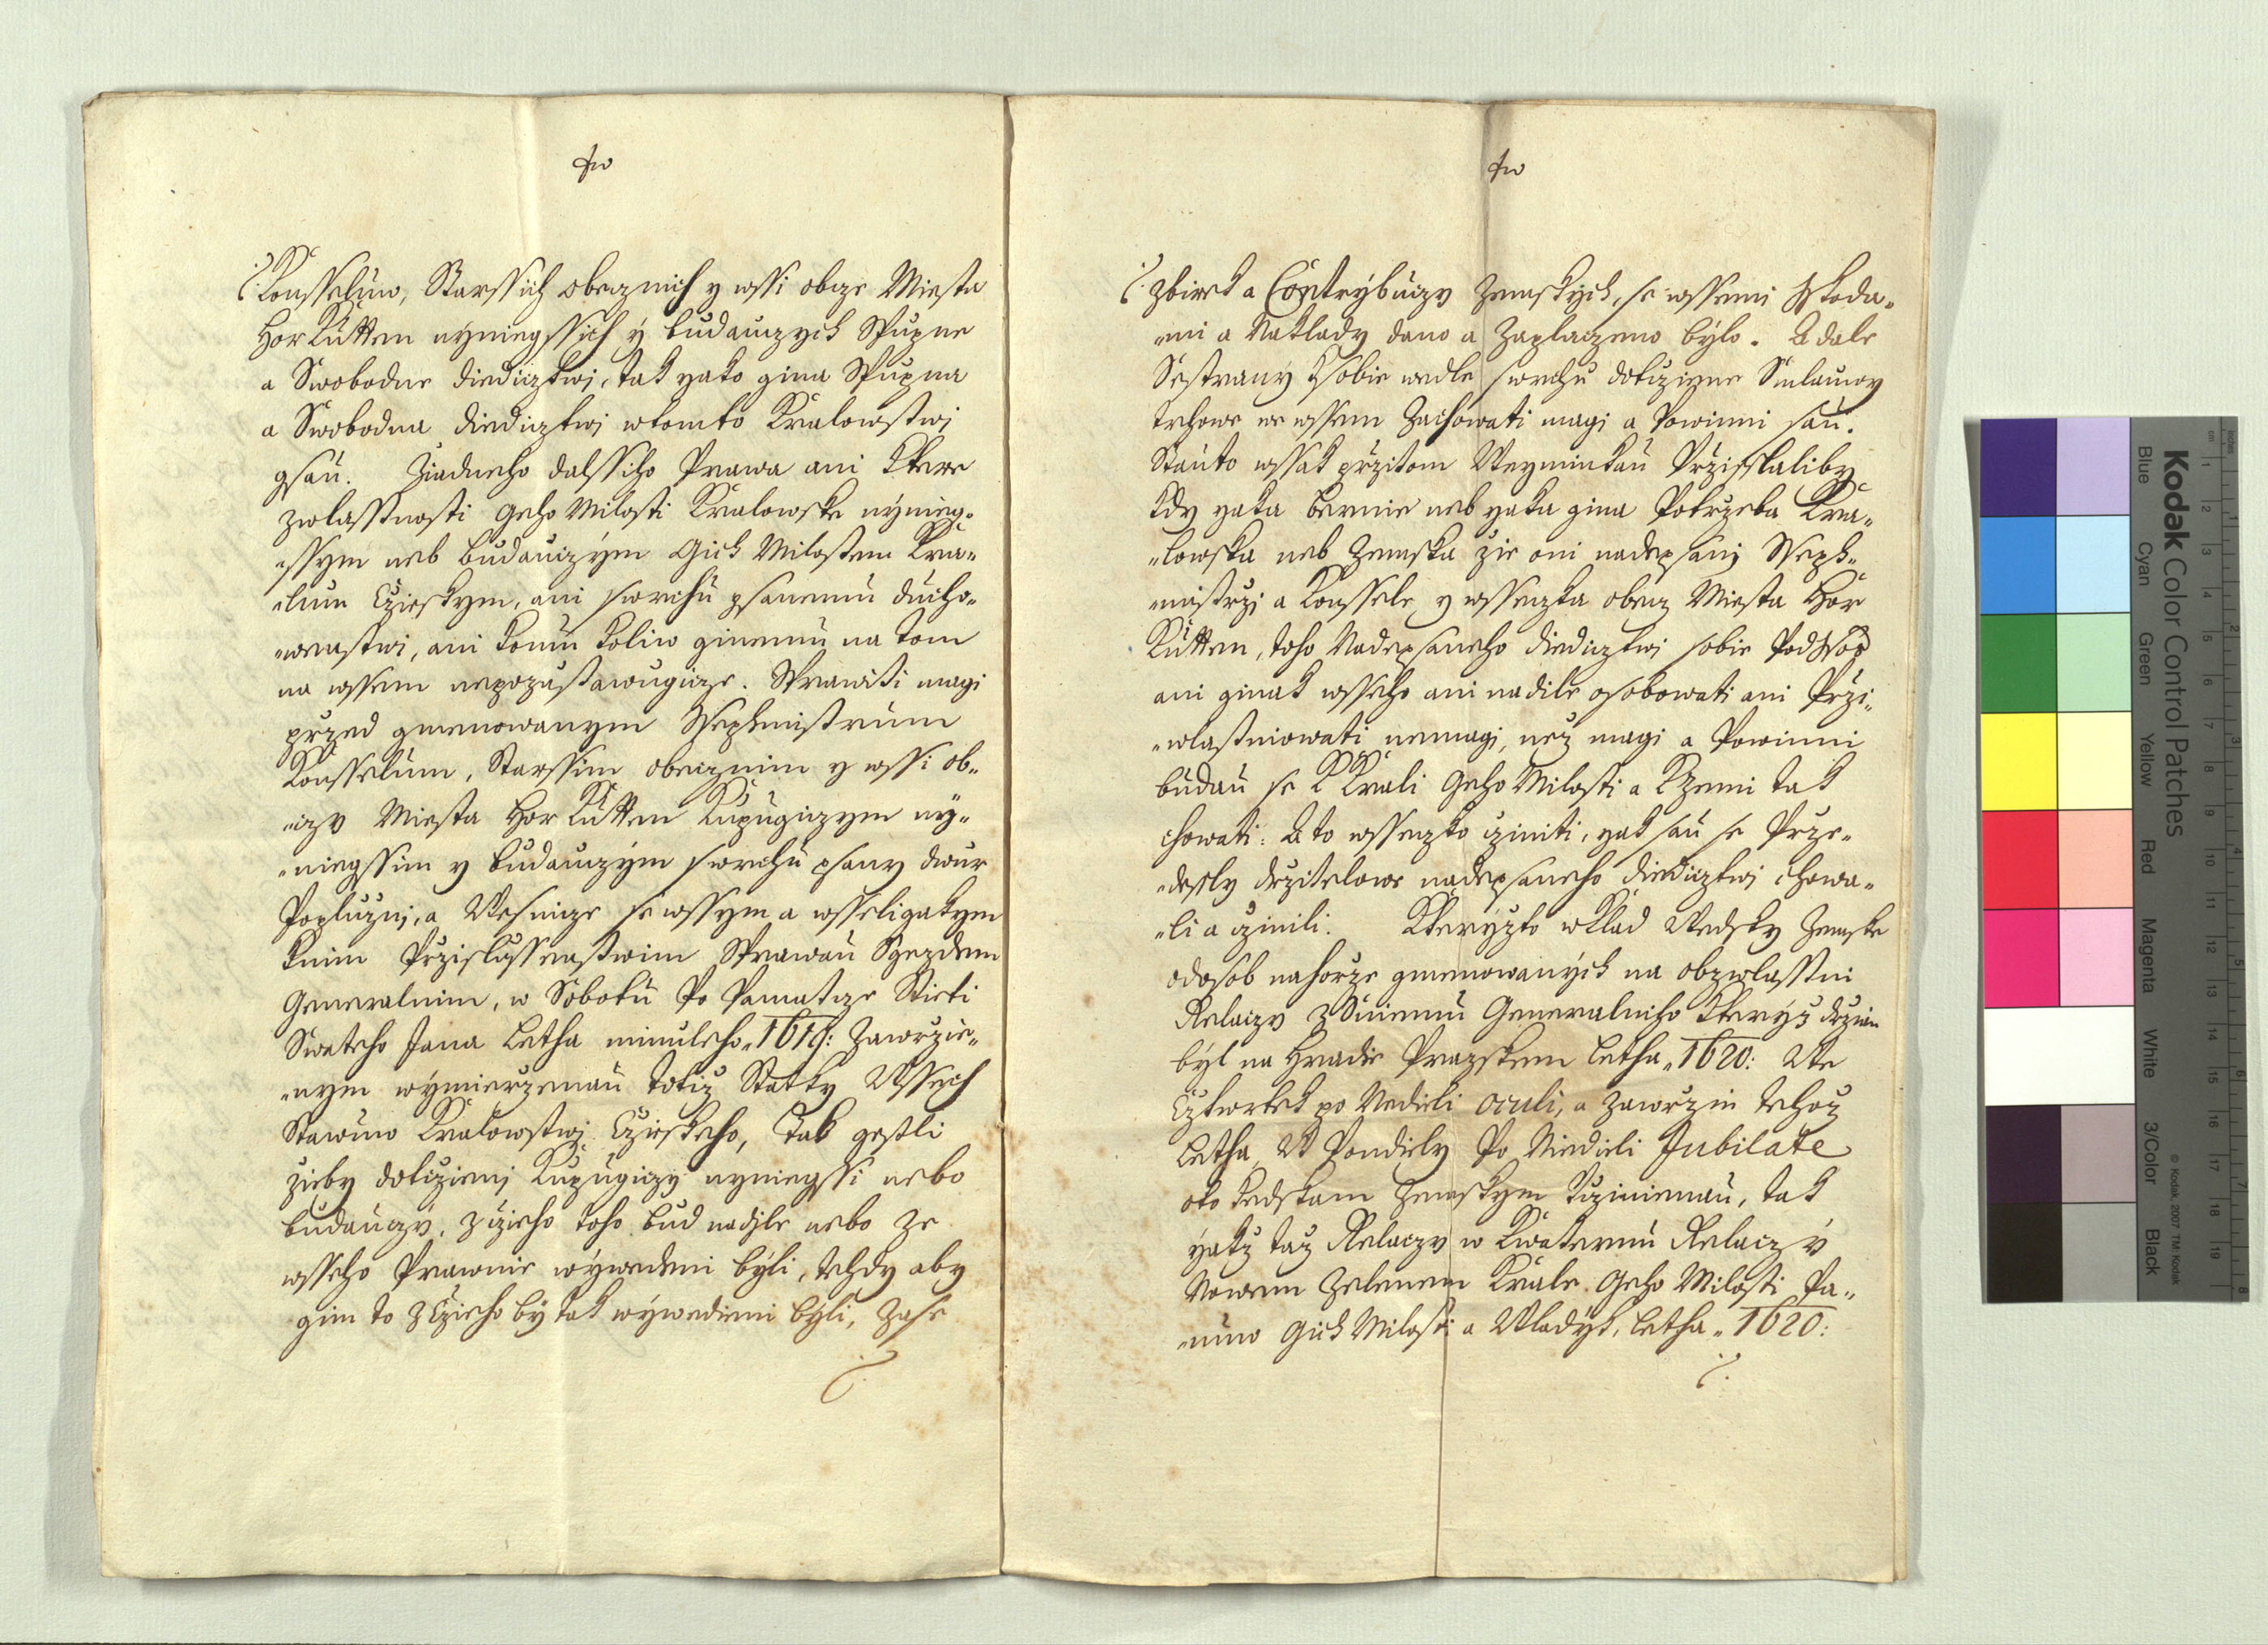 Konsseluw, Starssich obecznich y wssi obcze Miesta
Hor Kutten nyniegssich y budauczych Spupne
a Swobodne diedicztwi, tak yako gina Spupna
a Swobodna diedicztwi wtomto Kralowstwi
gsau. Ziadneho dalssiho Prawa ani Ktere
zwlasstnosti Geho Milosti Kralowske nynieg„
„ssym neb budauczym Gich Milostem Kra„
„lum Czieskym, ani swrchu psanemu ducho„
„wenstwi, ani komu koliw ginemu na tom
na wssem nepozustawugicze. Sprawiti magi
przed gmenowanym Ssephmistrum
Konsselum, Starssim obecznim y wssi ob„
„czy Miesta Hor Kutten Kupugiczym ny„
„niegssim y budauczym swrchu psany dwur
Popluzni, a Wesnicze se wssym a wsseligakym
knim Przislussenstwim Sprawau Sgezdem
Generalnim, w Sobotu Po Pamatcze Stieti
Swateho Jana Letha minuleho„ 1619: Zawrzie„
„nym wymierzenau totiz Statky Wssech
Stawuw Kralowstwi Czieskeho, Tak gestli
zieby dotczieni Kupugiczy nyniegssi nebo
budauczy, z czieho toho bud nadile nebo ze
wsseho Prawnie wywedeni byli, tehdy aby
gim to z Czieho by tak wywedieni byli, zase
Zbirek a Contrybuczy Zemskych, se wssemi Sskoda„
„mi a Naklady dano a Zaplaczeno bylo. A dale
Sestrany K sobie wedle swrchu dotcziene Smlauwy
trhowe we wssem Zachowati magi a Powinni sau.
Stauto wssak przitom Weyminkau Przisslaliby
kdy yaka bernie neb yaka gina Potrzeba Kra„
„lowska neb Zemska zie oni nadepsani Sseph„
„mistrzi a Konssele y wsseczka obecz Miesta Hor
Kutten, toho Nadepsaneho diedicztwi sobie Podssos
ani ginak wsseho ani nadile osobowati ani Przi„
„wlastniowati nemagi, nez magi a Powinni
budau se K Krali Geho Milosti a K Zemi tak
chowati: A to wsseczko cziniti, yak sau se Prze„
„dessly drzitelowe nadepsaneho diedicztwi chowa„
„li a czinili. Kteryzto wklad Wedsky Zemske
odosob nahorze gmenowanych na obzwlasstni
Relaczy z Sniemu Generalniho kteryz drzian
byl na Hradie Prazskem Letha„ 1620: We
Cztwrtek po Nedieli Oculi, a zawrzin tehoz
Letha W Pondiely Po Niedieli Jubilate
oto kedskam Zemskym Ucziniemau, tak
yakz taz Relaczy w Kwaternu Relaczy
Nowem Zelenem Krale Geho Milosti Pa„
„nuw Gich Milosti a Wladyk, Letha„ 1620: